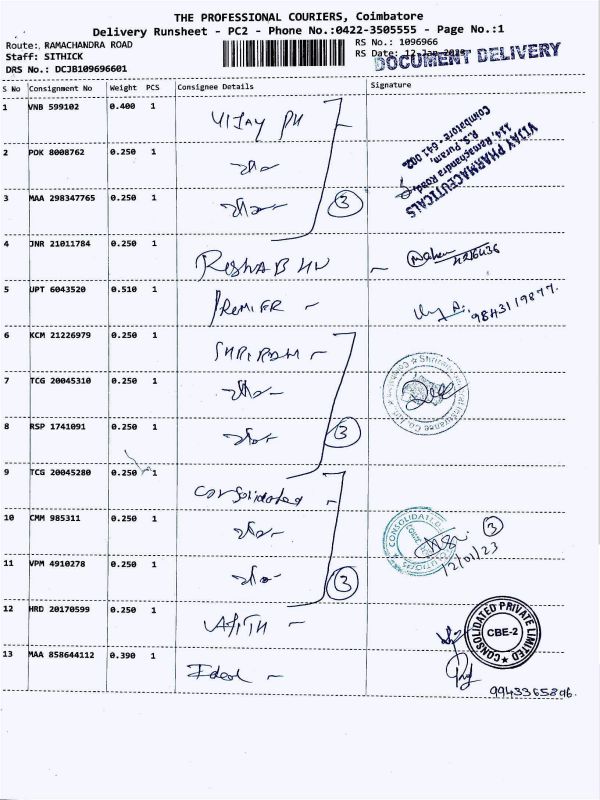 THE PROFESSIONAL COURIERS, Coimbatore
Delivery Runsheet - PC2 - Phone No.:0422-3505555 - Page No.:1
Route:. RAMACHANDRA ROAD
Staff: SITHICK
DRS No.: DCJB109696601
RS No.: 1096966
RS Date: 12-Jan-2023
DOCUMENT DELIVERY
S No Consignment No Weight PCS Consignee Details Signature
1 VNB 599102 0.400 1 VIJAY PH
VIJAY PHARMACEUTICALS
114, Ramachandra Road,
R.S. Puram,
Coimbatore - 641 002.
2 POK 8008762 0.250 1
3 MAA 298347765 0.250 1 3
4 JNR 21011784 0.250 1
5 UPT 6043520 0.510 1 PREMIER 9843119877.
6 KCM 21226979 0.250 1 SHRIRAM
7 TCG 20045310 0.250 1
8 RSP 1741091 0.250 1 3
9 TCG 20045280 0.250 1 Consolidated
10 CMM 985311 0.250 1 CONSOLIDATED 3
12/01/23
11 VPM 4910278 0.250 1 3
12 HRD 20170599 0.250 1
CONSOLIDATED PRIVATE LIMITED
CBE-2
13 MAA 858644112 0.390 1 Ideal
9943365896.